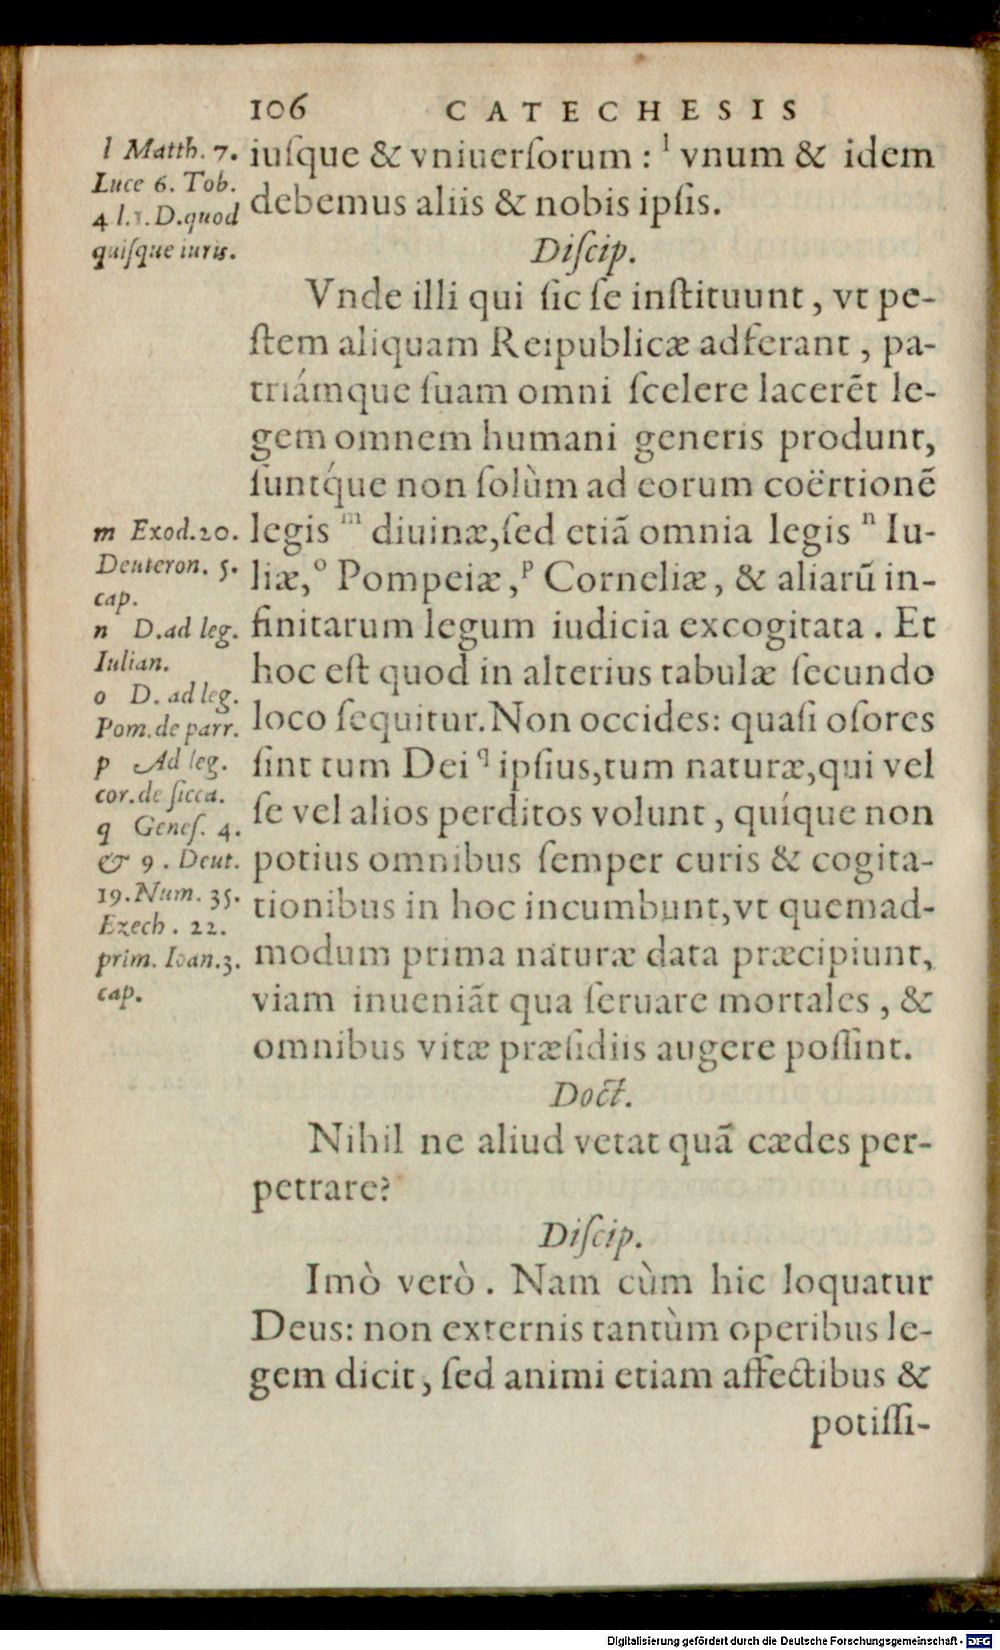 106 CATECHESIS
iuſque & vniuerſorum : l vnum & idem
debemus aliis & nobis ipſis.
Diſcip.
Vnde illi qui ſic ſe inſtituunt, vt pe-
ſtem aliquam Reipublicæ adferant, pa-
triámque ſuam omni ſcelere lacerēt le-
gem omnem humani generis produnt,
ſuntq́ue non ſolùm ad eorum coërtionē
legis m diuinæ, ſed etiā omnia legis n Iu-
liæ, o Pompeiæ, p Corneliæ, & aliarū in-
finitarum legum iudicia excogitata. Et
hoc eſt quod in alterius tabulæ ſecundo
loco ſequitur. Non occides: quaſi oſores
ſint tum Dei q ipſius, tum naturæ, qui vel
ſe vel alios perditos volunt, quíque non
potius omnibus ſemper curis & cogita-
tionibus in hoc incumbunt, vt quemad-
modum prima naturæ data præcipiunt,
viam inueniāt qua ſeruare mortales, &
omnibus vitæ præſidiis augere poſſint.
Doct.
Nihil ne aliud vetat quā cædes per-
petrare?
Diſcip.
Imò verò. Nam cùm hic loquatur
Deus: non externis tantùm operibus le-
gem dicit, ſed animi etiam affectibus &
potiſſi-
l Matth. 7.
Luce 6. Tob.
4 l.1. D. quod
quiſque iuris.
m Exod. 20.
Deuteron. 5.
cap.
n D. ad leg.
Iulian.
o D. ad leg.
Pom. de parr.
p Ad leg.
cor. de ſicca.
q Geneſ. 4.
& 9. Deut.
19. Num. 35.
Ezech. 22.
prim. Ioan. 3.
cap.
Digitalisierung gefördert durch die Deutsche Forschungsgemeinschaft - DFG